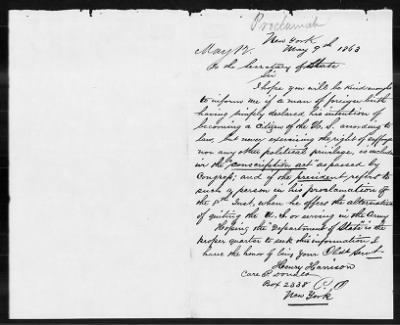 Proclamat
New York
May 12.
May 9th 1863
To the Secretary of State
Sir
I hope you will be kind enough
to inform me if a man of foreign birth
having simply declared his intention of
becoming a citizen of the U. S. according to
law, but never exercising the right of suffrage
nor any other political privilege, is included
in the "conscription act" as passed by
Congress; and if the president refers to
such a person in his proclamation of
the 8th Inst, where he offers the alternative
of quiting the U. S. or serving in the Army
Hoping the "Department of State" is the
proper quarter to seek this information I
have the honor of being your Obdt Servt
Henry Harrison
Care P.
Box 2338 P. O
New York